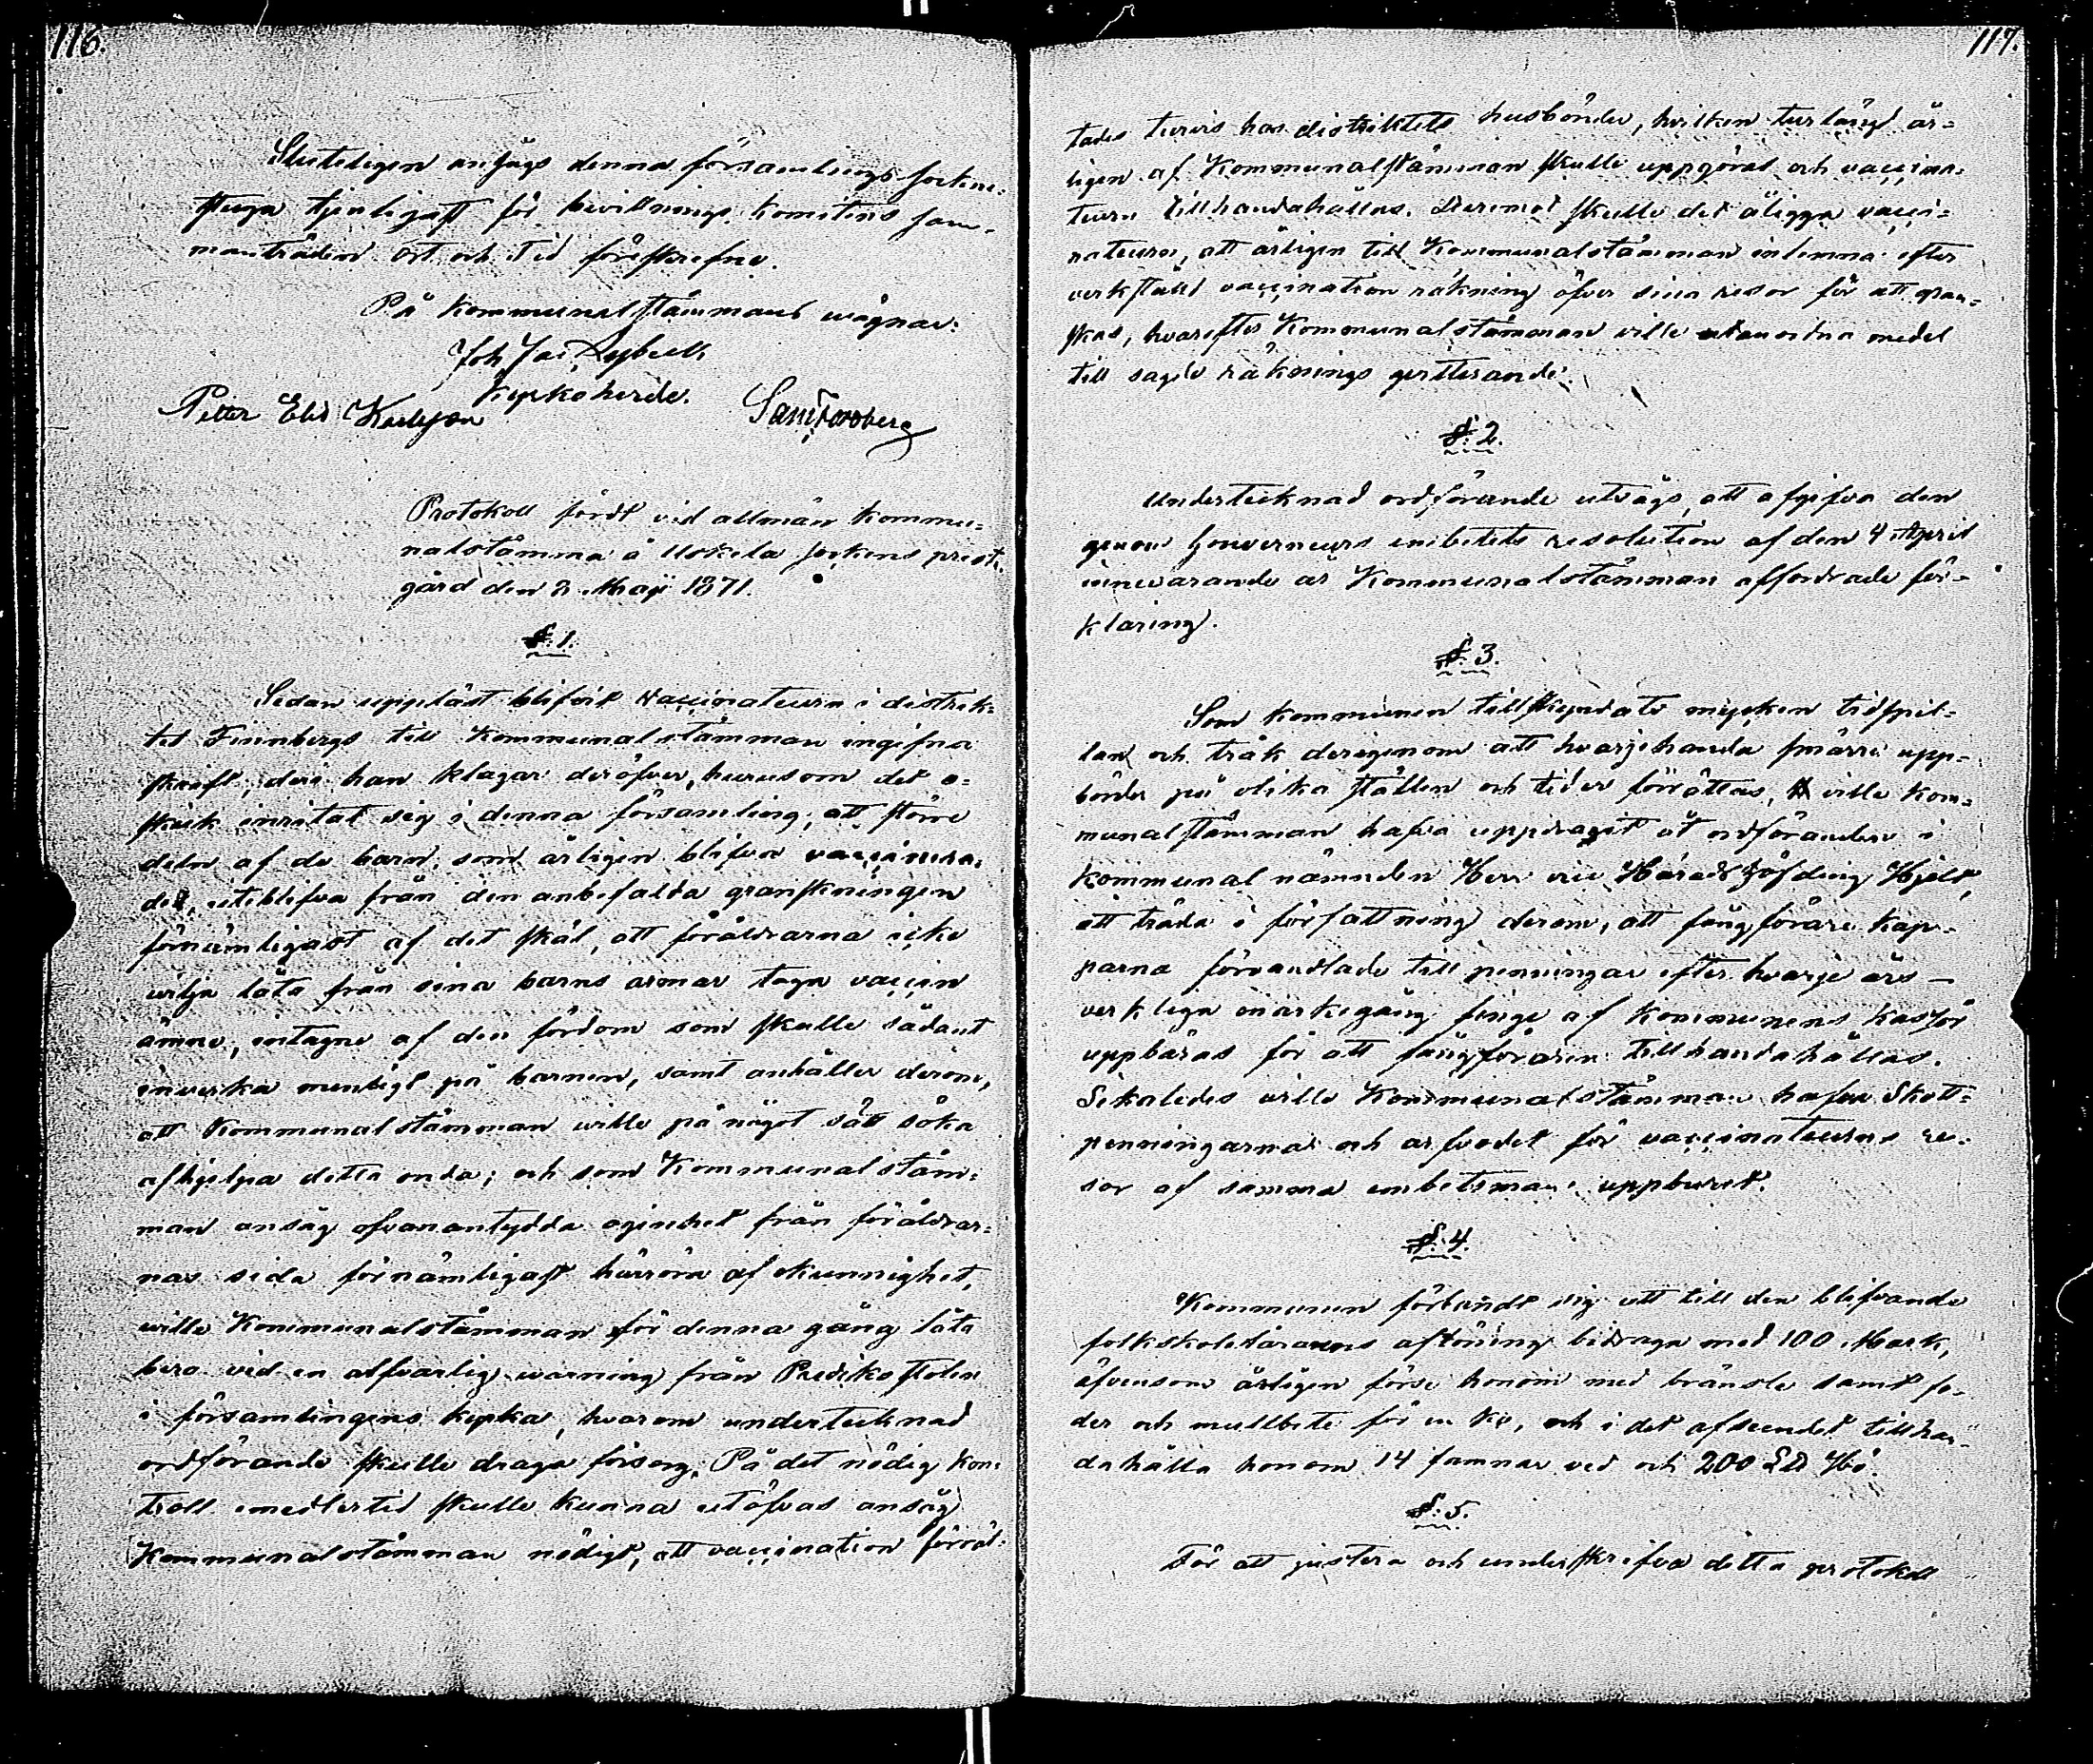 116.
Slutligen ansågs denna församlings socken-
stuga tjenligast för bevillnings komiténs sam-
manträden. Ort och tid föreskrefne.
På Kommunalstämmans wägnar:
Joh Jac Dyberk
Kyrkoherde.
Petter Elis Karlsson Sam Forsberg
Protokoll fördt vid allmän kommu-
nalstämma å Uskela sockens prest-
gård den 2 Maji 1871.
§. 1.
Sedan uppläst blifvit vaccinateurn i distrik-
tet Finnbergs till Kommunalstämman ingifna
skrift, deri han klagar deröfver, hurusom det o-
skick inritat sig i denna församling, att större
delen af de barn, som årligen blifva vaccinera-
de, uteblifva från den anbefalda granskningen
förnämligast af det skäl, att föräldrarna icke
vilja låta från sina barns armar taga vaccin
ämne, intagne af den fördom som skulle sådant
inverka menligt på barnen, samt anhåller derom,
att Kommunalstämman wille på något sätt söka
afhjelpa detta onda; och som Kommunalstäm-
man ansåg ofvanantydda oginhet från föräldrar-
nas sida förnämligast härröra af okunnighet,
wille Kommunalstämman för denna gång låta
bero vid en alfvarlig warning från Predikstolen
i församlingens kyrka, hvarom undertecknad
ordförande skulle draga försorg. På det nödig kon-
troll emedlertid skulle kunna utöfvas ansåg
Kommunalstämman nödigt, att vaccination förrät-
117.
tades turvis hos distriktets husbönder, hvilken turlängd år-
ligen af Kommunalstämman skulle uppgöras och vaccina-
teurn tillhandahållas. Deremot skulle det åligga vacci-
nateurn, att årligen till Kommunalstämman inlemna efter
verkställd vaccination räkning öfver sina resor för att gran-
skas, hvarefter Kommunalstämman ville utanordna medel
till sagde räknings gvitterande.
§. 2.
Undertecknad ordförande utsågs, att afgifva den
genom Gouverneurs embetets resolution af den 4 April
innevarande år Kommunalstämman affordrade för-
klaring.
§. 3.
Som kommunen tillskyndats mycken tidspil-
lan och tråk derigenom att hvarjehanda smärre upp-
börder på olika ställen och tider förrättas, ville kom-
munalstämman hafva uppdragit åt ordföranden i
kommunalnämnden Herr vice Häradshöfding Hjelt,
att träda i författning derom, att fångförare kap-
parna förvandlade till penningar efter hvarje års
verkliga markegång finge af kommunens kassör
uppbäras för att fångföraren tillhandahållas.
Likaledes wille Kommunalstämman hafva Skott-
penningarna och arfvodet för vaccinateurns re-
sor af samma embetsman uppburet.
§. 4.
Kommunen förbandt sig att till den blifvande
folkskolelärarens aflöning bidraga med 100 Mark,
äfvensom årligen förse honom med bränsle samt fo-
der och mullbete för en ko, och i det afseendet tillhan-
dahålla honom 14 famnar ved och 200 L℔ Hö.
§. 5.
För att justera och underskrifva detta protokoll